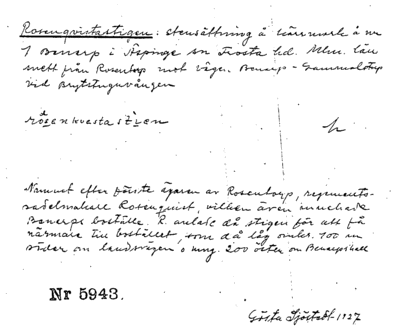 Rosenqviststigen: stensättning å kärrmark å nr
1 Benarp i Äspinge sn Frosta hd. Mlm. län
mett från Rosentorp mot vägen Benarp - Gammalstorp
vid Brytstuguvången
rosenkvestastien
Namnet efter förste ägaren av Rosentorp, regements-
sadelmakare Rosenquist, vilken även innehade
Benarps boställe. R. anlade då stigen för att få
närmare till bostället, som då låg omkr. 100 m
söder om landsvägen o ung. 200 öster om Benarps
Nr 5943.
Gösta Sjöstedt 1927